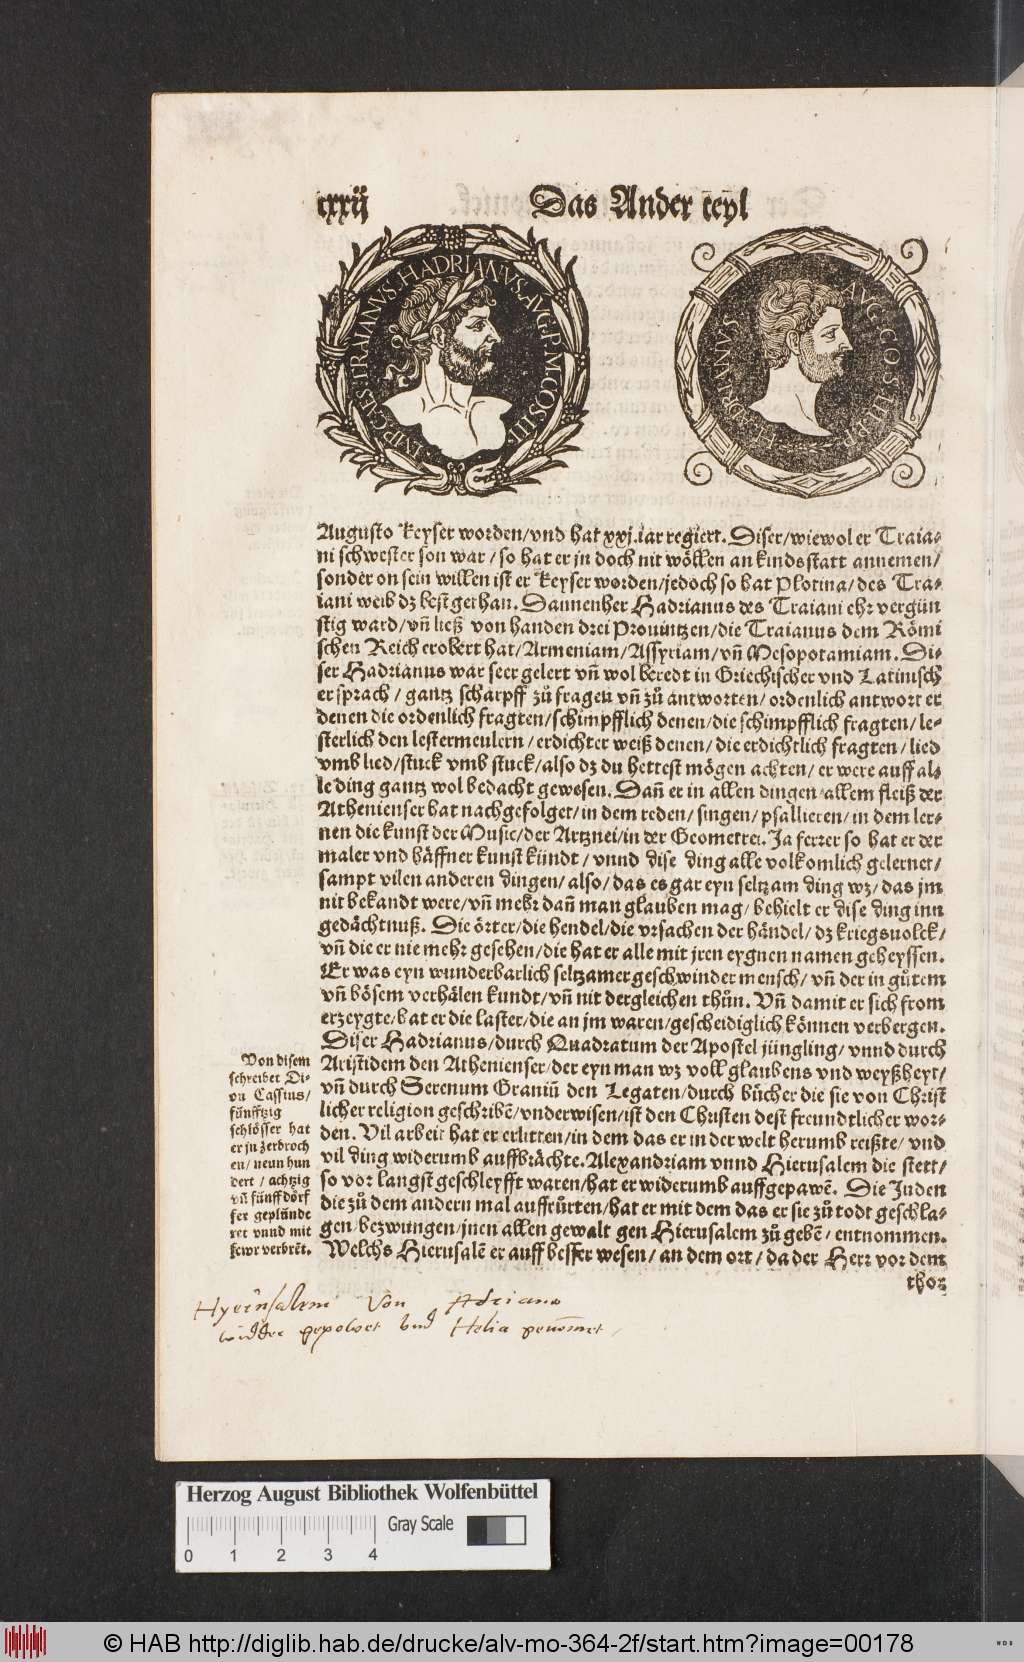 cxxij Das Ander teyl
IMP. CAES. TRAIANVS. HADRIANVS. AVG. P. M. COS. III.
HADRIANVS AVG. COS. III. P. P.
Augusto Keyser worden/vnd hat xxj. iar regiert. Diser/wiewol er Traia⸗
ni schwester son war/so hat er jn doch nit wöllen an kindsstatt annemen/
sonder on sein willen ist er Keyser worden/jedoch so hat Plotina/des Tra⸗
iani weib dz best gethan. Dannenher Hadrianus des Traiani ehr vergün
stig ward/vñ ließ von handen drei Prouintzen/die Traianus dem Römi
schen Reich erobert hat/Armeniam/Assyriam/vñ Mesopotamiam. Di⸗
ser Hadrianus war seer gelert vñ wol beredt in Griechischer vnd Latinisch
er sprach/gantz scharpff zů fragen vñ zů antworten/ordenlich antwort er
denen die ordenlich fragten/schimpfflich denen/die schimpfflich fragten/le⸗
sterlich den lestermeulern/erdichter weiß denen/die erdichtlich fragten/lied
vmb lied/stuck vmb stuck/also dz du hettest mögen achten/er were auff al⸗
le ding gantz wol bedacht gewesen. Dañ er in allen dingen allem fleiß der
Athenienser hat nachgefolget/in dem reden/singen/psallieren/in dem ler⸗
nen die kunst der Music/der Artznei/in der Geometrei. Ja ferrer so hat er der
maler vnd häffner kunst kündt/vnnd dise ding alle volkomlich gelernet/
sampt vilen anderen dingen/also/das es gar eyn seltzam ding wz/das jm
nit bekandt were/vñ mehr dañ man glauben mag/behielt er dise ding inn
gedächtnuß. Die örter/die hendel/die vrsachen der händel/dz kriegsuolck/
vñ die er nie mehr gesehen/die hat er alle mit jren eygnen namen geheyssen.
Er was eyn wunderbarlich seltzamer geschwinder mensch/vñ der in gůtem
vñ bösem verhälen kundt/vñ nit dergleichen thůn. Vñ damit er sich from
erzeygte/hat er die laster/die an jm waren/gescheidiglich können verbergen.
Diser Hadrianus/durch Quadratum der Apostel jüngling/vnnd durch
Aristidem den Athenienser/der eyn man wz voll glaubens vnd weyßheyt/
vñ durch Serenum Graniũ den Legaten/durch bücher die sie von Christ
licher religion geschribẽ/vnderwisen/ist den Christen dest freundtlicher wor⸗
den. Vil arbeit hat er erlitten/in dem das er in der welt herumb reißte/vnd
vil ding widerumb auffbrächte. Alexandriam vnnd Hierusalem die stett/
so vor langst geschleyfft waren/hat er widerumb auffgepawẽ. Die Juden
die zů dem andern mal auffrůrten/hat er mit dem das er sie zů todt geschla⸗
gen/bezwungen/jnen allen gewalt gen Hierusalem zů gebẽ/entnommen.
Welchs Hierusalẽ er auff besser wesen/an dem ort/da der Herr vor dem
thor
Von disem
schreibet Di⸗
on Cassius/
fünfftzig
schlösser hat
er jn zerbroch
en/neun hun
dert/achtzig
vñ fünff dörf
fer geplündt
ret vnnd mit
fewr verbrẽt.
Von Adriano
widder gepowet vnd Helia genom̃et
Herzog August Bibliothek Wolfenbüttel
Gray Scale
0 1 2 3 4
© HAB http://diglib.hab.de/drucke/alv-mo-364-2f/start.htm?image=00178